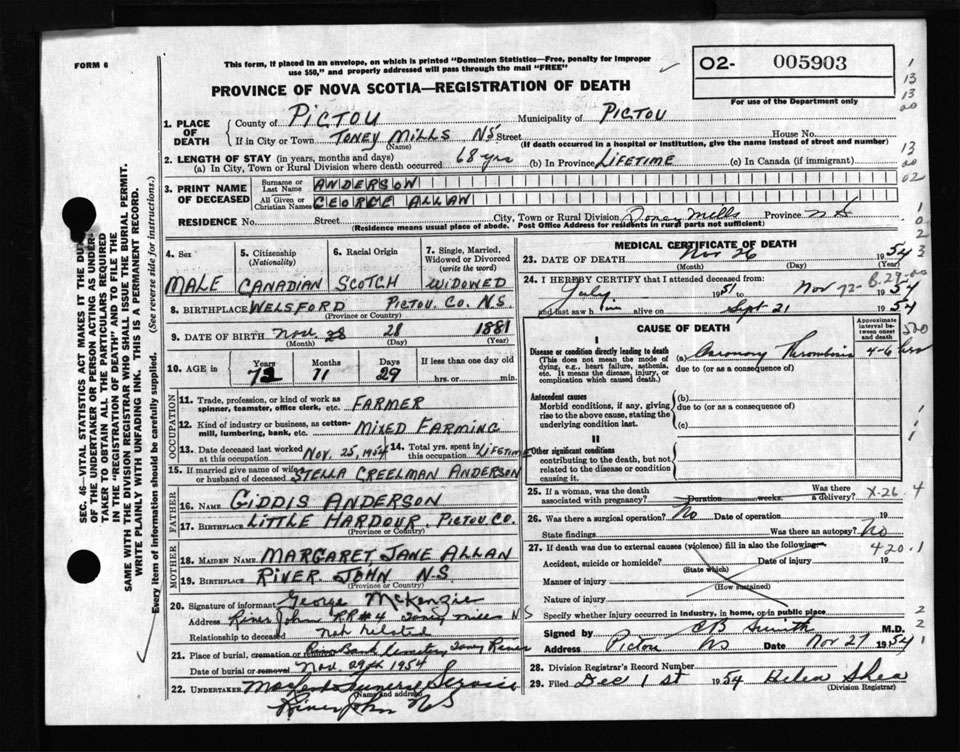 FORM 6
This form, if placed in an envelope, on which is printed "Dominion Statistics—Free, penalty for improper
use $50," and properly addressed will pass through the mail "FREE"
O2- 005903
For use of the Department only
PROVINCE OF NOVA SCOTIA—REGISTRATION OF DEATH
1. PLACE OF DEATH
County of PICTOU Municipality of PICTOU
If in City or Town TONEY MILLS NS Street House No.
(Name) (If death occurred in a hospital or institution, give the name instead of street and number)
2. LENGTH OF STAY (in years, months and days)
(a) In City, Town or Rural Division where death occurred 68 yrs (b) In Province LIFETIME (c) In Canada (if immigrant)
3. PRINT NAME OF DECEASED
Surname or Last Name ANDERSON
All Given or Christian Names GEORGE ALLAN
RESIDENCE No. Street City, Town or Rural Division Toney Mills Province NS
(Residence means usual place of abode. Post Office Address for residents in rural parts not sufficient)
4. Sex MALE
5. Citizenship (Nationality) CANADIAN
6. Racial Origin SCOTCH
7. Single, Married, Widowed or Divorced (write the word) WIDOWED
8. BIRTHPLACE WELSFORD PICTOU. CO. N.S.
(Province or Country)
9. DATE OF BIRTH Nov. 28 28 1881
(Month) (Day) (Year)
10. AGE in Years 72 Months 11 Days 29 If less than one day old
hrs. or min.
OCCUPATION
11. Trade, profession, or kind of work as spinner, teamster, office clerk, etc. FARMER
12. Kind of industry or business, as cotton-mill, lumbering, bank, etc. MIXED FARMING
13. Date deceased last worked at this occupation Nov. 25, 1954
14. Total yrs. spent in this occupation LIFETIME
15. If married give name of wife or husband of deceased STELLA CREELMAN ANDERSON
FATHER
16. NAME GIDDIS ANDERSON
17. BIRTHPLACE LITTLE HARBOUR, PICTOU. CO.
(Province or Country)
MOTHER
18. MAIDEN NAME MARGARET JANE ALLAN
19. BIRTHPLACE RIVER JOHN N.S
(Province or Country)
20. Signature of informant George McKenzie
Address River John RR#4 Toney Mills NS
Relationship to deceased Not related
21. Place of burial, cremation or removal Bank Cemetery Toney River
Date of burial or removal Nov. 29th 1954
22. UNDERTAKER Funeral Service
(Name and address)
River John NS
MEDICAL CERTIFICATE OF DEATH
23. DATE OF DEATH Nov 26 1954
(Month) (Day) (Year)
24. I HEREBY CERTIFY that I attended deceased from:
July 1951 to Nov 1954
and last saw h im alive on Sept 21 1954
CAUSE OF DEATH
Approximate interval between onset and death
I
Disease or condition directly leading to death
(This does not mean the mode of dying, e.g., heart failure, asthenia, etc. It means the disease, injury, or complication which caused death.)
(a) Coronary Thrombosis 4-6 hrs
due to (or as a consequence of)
Antecedent causes
Morbid conditions, if any, giving rise to the above cause, stating the underlying condition last.
(b)
due to (or as a consequence of)
(c)
II
Other significant conditions
contributing to the death, but not related to the disease or condition causing it.
25. If a woman, was the death associated with pregnancy? Duration weeks. Was there a delivery? X-26
26. Was there a surgical operation? No Date of operation 19
State findings Was there an autopsy? No
27. If death was due to external causes (violence) fill in also the following:
420.1
Accident, suicide or homicide? Date of injury 19
(State which)
Manner of injury
(How sustained)
Nature of injury
Specify whether injury occurred in industry, in home, or in public place
Signed by CB Smith M.D.
Address Pictou NS Date Nov 27 1954
28. Division Registrar's Record Number
29. Filed Dec 1 st 1954 Helen Shea
(Division Registrar)
SEC. 46—VITAL STATISTICS ACT MAKES IT THE DUTY
OF THE UNDERTAKER OR PERSON ACTING AS UNDER-
TAKER TO OBTAIN ALL THE PARTICULARS REQUIRED
IN THE "REGISTRATION OF DEATH" AND TO FILE THE
SAME WITH THE DIVISION REGISTRAR WHO SHALL ISSUE THE BURIAL PERMIT.
WRITE PLAINLY WITH UNFADING INK. THIS IS A PERMANENT RECORD.
Every item of information should be carefully supplied. (See reverse side for instructions.)